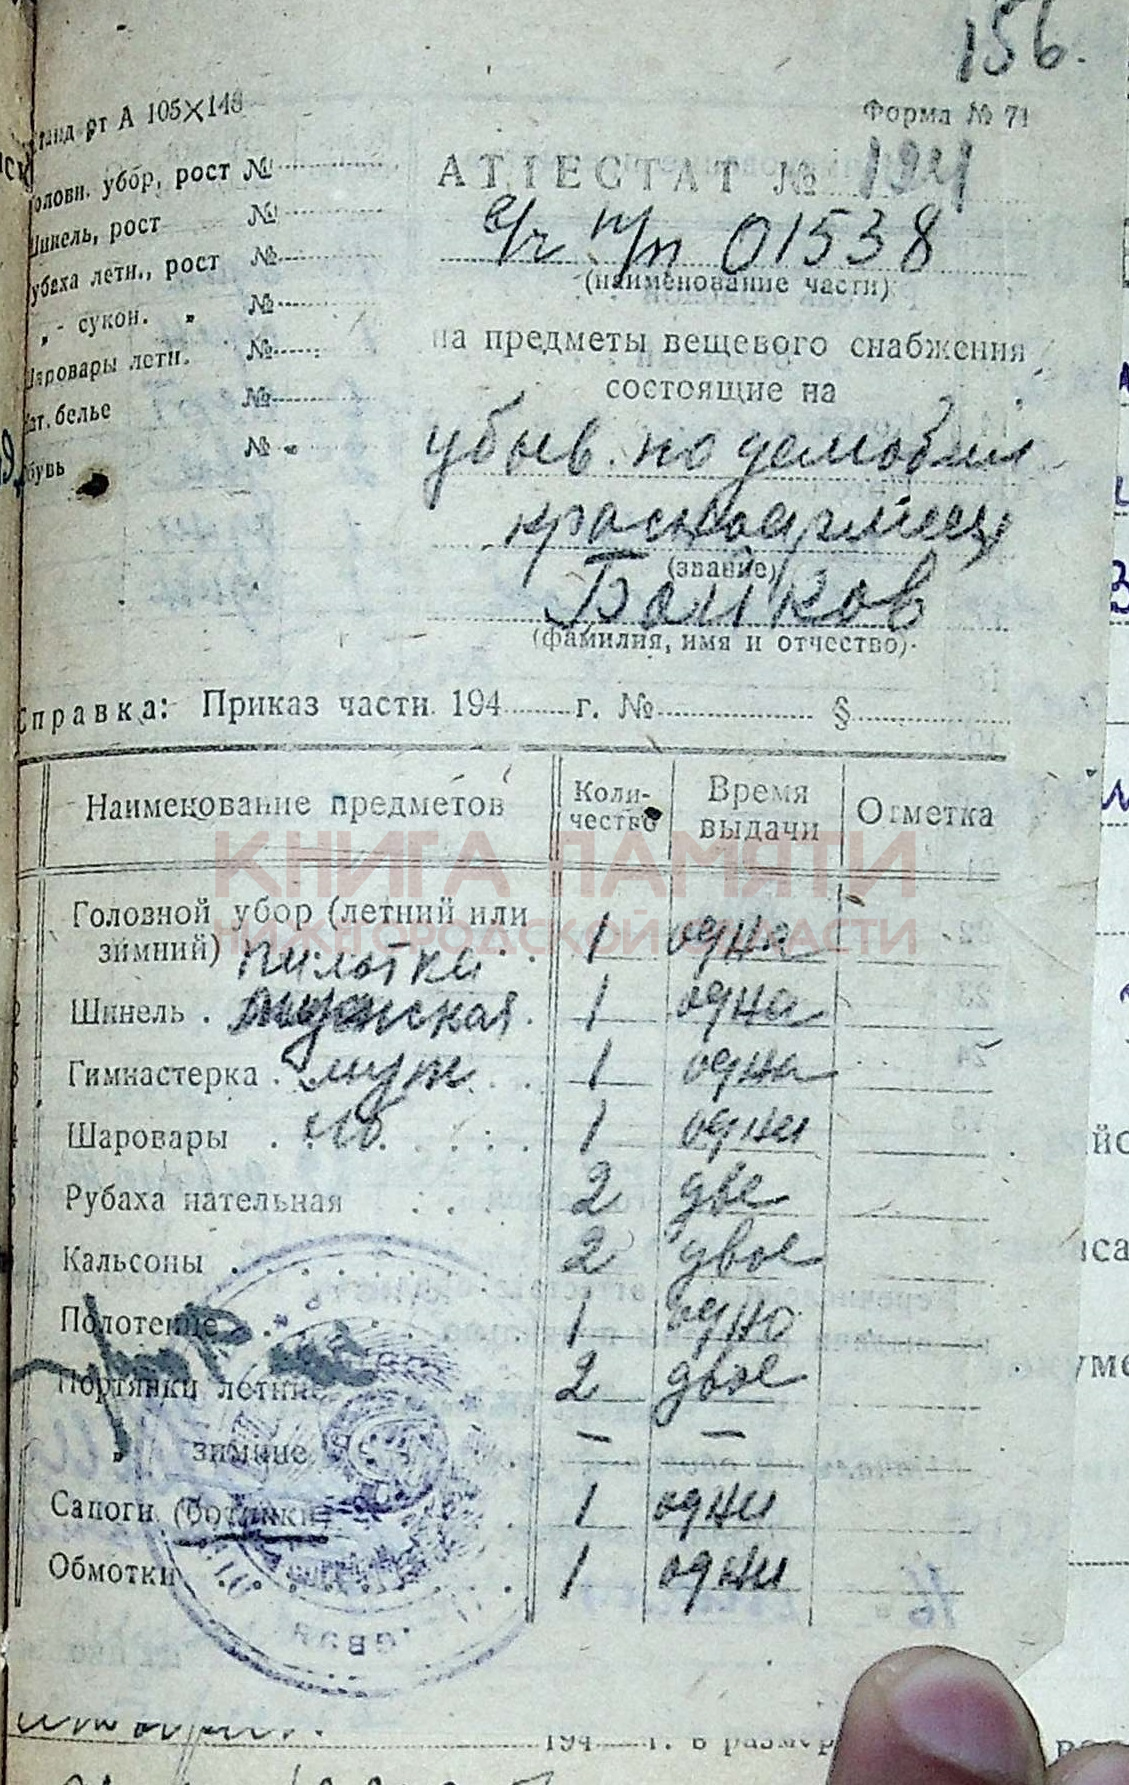 156.
Форма № 71
Станд рт А 105×148
Головн. убор, рост №
Шинель, рост №
Рубаха летн., рост №
„ - сукон. „ №
Шаровары летн. №
Нат. белье №
Обувь № -
АТТЕСТАТ № 194
в/ч п/п 01538
(наименование части)
на предметы вещевого снабжения
состоящие на
убыв. по демобил
красноармеец
(звание)
Байков
(фамилия, имя и отчество)
Справка: Приказ части 194 г. № §
Наименование предметов Коли-чество Время выдачи Отметка
КНИГА ПАМЯТИ
НИЖЕГОРОДСКОЙ ОБЛАСТИ
Головной убор (летний или
зимний) пилотка 1 одна
Шинель . 1 одна
Гимнастерка . 1 одна
Шаровары . х/б. 1 одни
Рубаха нательная 2 две
Кальсоны 2 двое
Полотенце 1 одно
Портянки летние 2 двое
„ зимние — —
Сапоги (ботинки) 1 одни
Обмотки 1 одни
194 г. в размер